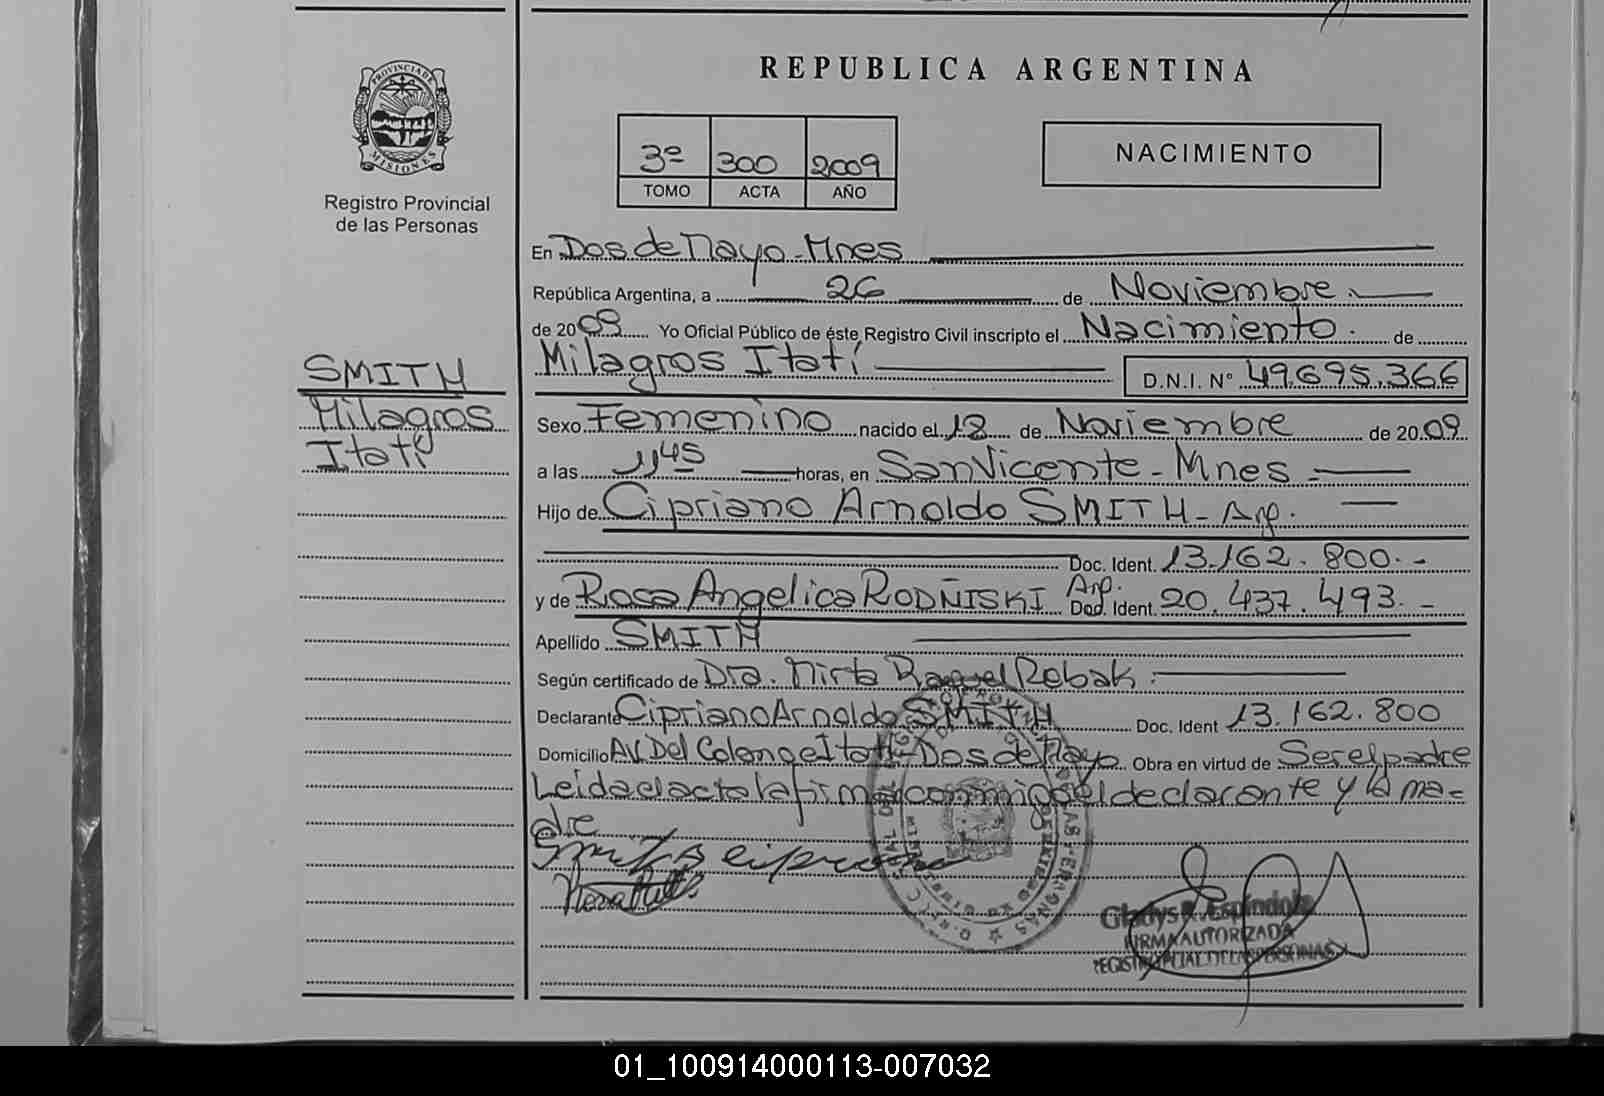 PROVINCIA DE
MISIONES
Registro Provincial
de las Personas
SMITH
Milagros
Itatí
REPUBLICA ARGENTINA
3º 300 2009
TOMO ACTA AÑO
NACIMIENTO
En Dos de Mayo - Mnes
República Argentina, a 26 de Noviembre.
de 2009 Yo Oficial Público de éste Registro Civil inscripto el Nacimiento. de
Milagros Itatí D.N.I. Nº 49.695.366
Sexo Femenino nacido el 18 de Noviembre de 2009
a las 11 45 horas, en San Vicente - Mnes -
Hijo de Cipriano Arnoldo SMITH - Arg.
Doc. Ident. 13.162.800.-
y de Rosa Angelica RODÑISKI Arg. Doc. Ident. 20.437.493.-
Apellido SMITH
Según certificado de Dra. Mirta Raquel Robak.
Declarante Cipriano Arnoldo SMITH Doc. Ident 13.162.800
Domicilio Av. Del Colono e Itatí - Dos de Mayo Obra en virtud de Ser el padre
Leida el acta la firman conmigo el declarante y la ma=
dre
Smith cipriano
Gladys R. Espíndola
FIRMA AUTORIZADA
REGISTRO PCIAL DE LAS PERSONAS
01_100914000113-007032